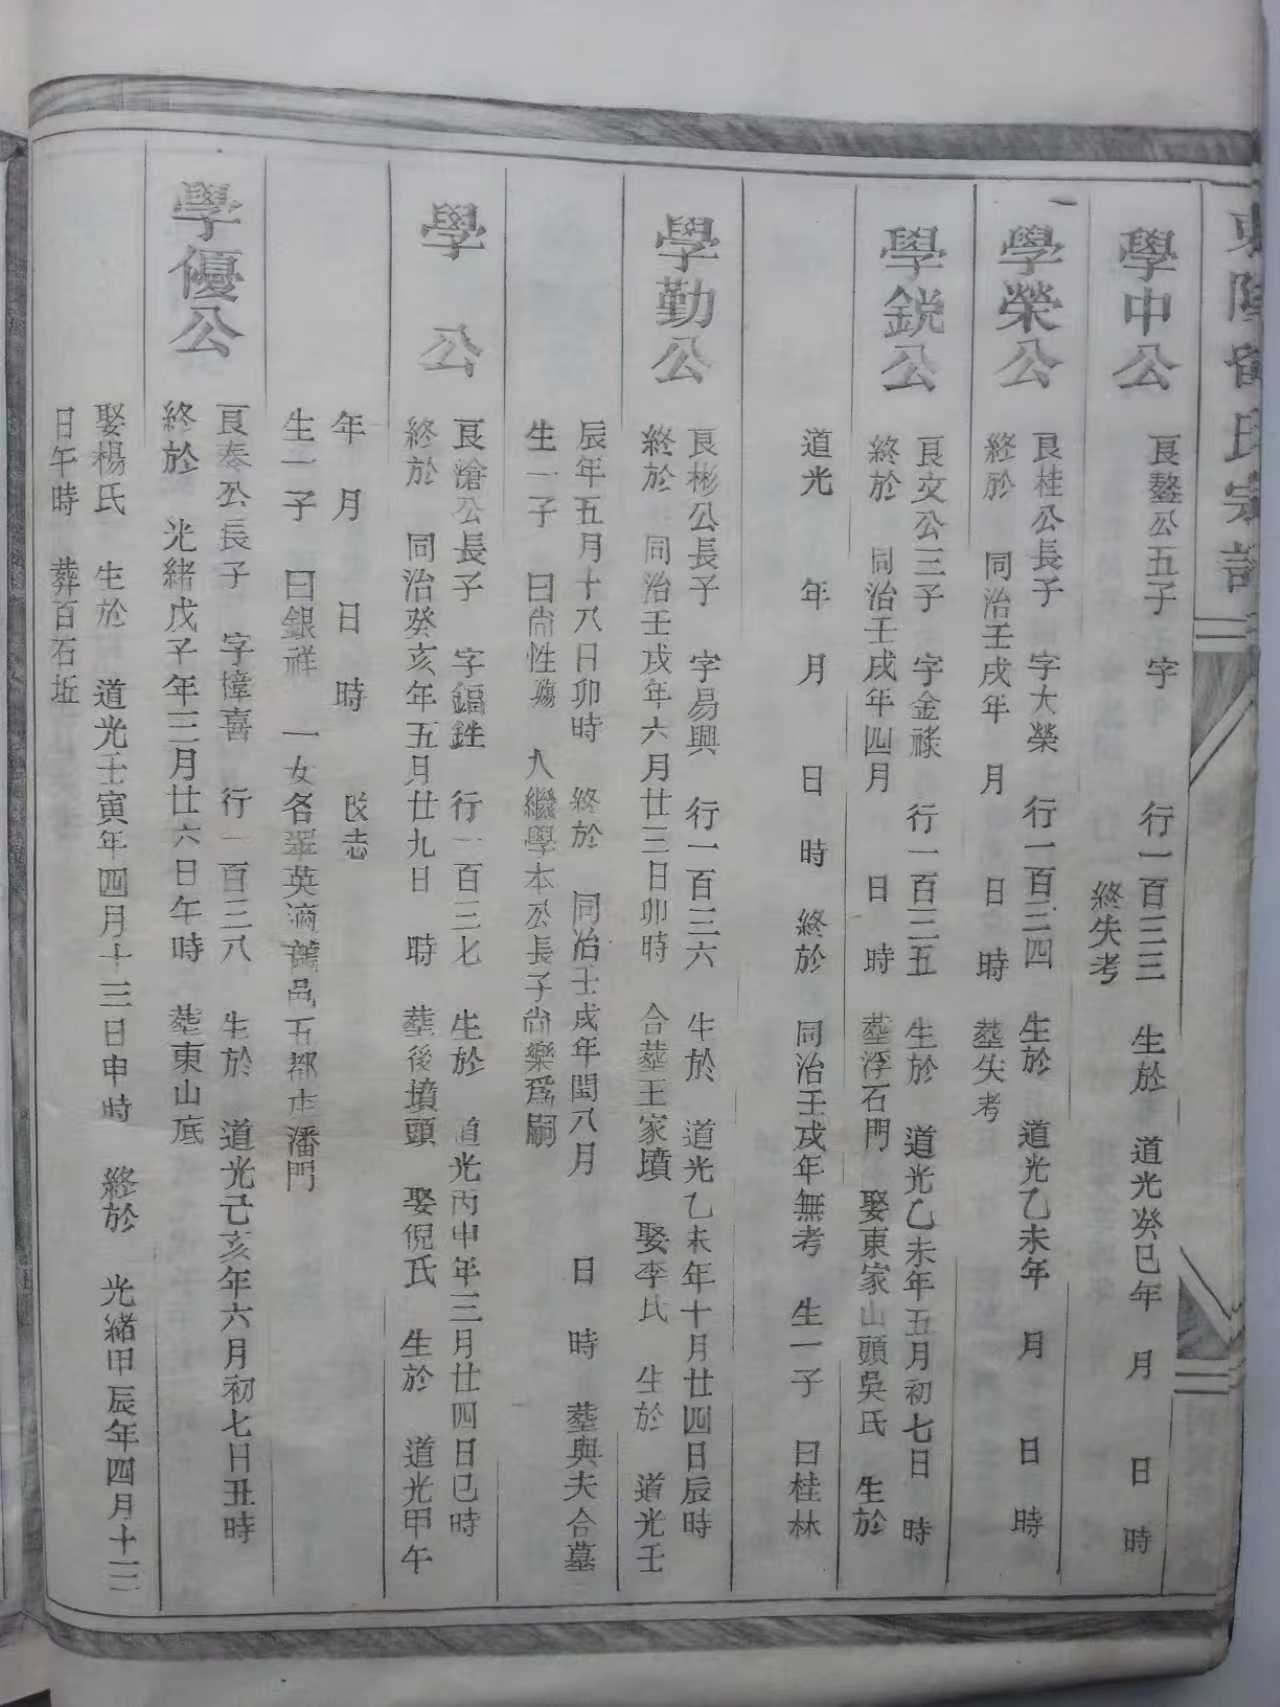 氏宗譜
學中公
艮鰲公五子 字 行一百三三 生於 道光癸巳年 月 日 時
終失考
學榮公
艮桂公長子 字大榮 行一百三四 生於 道光乙未年 月 日 時
終於 同治壬戌年 月 日 時 塟失考
學鋭公
艮文公三子 字金祿 行一百三五 生於 道光乙未年五月初七日 時
終於 同治壬戌年四月 日 時 塟浮石門 娶東家山頭吳氏 生於
道光 年 月 日 時 終於 同治壬戌年無考 生一子 曰桂林
學勤公
艮彬公長子 字易興 行一百三六 生於 道光乙未年十月廿四日辰時
終於 同治壬戌年六月廿三日卯時 合塟王家墳 娶李氏 生於 道光壬
辰年五月十八日卯時 終於 同治壬戌年閏八月 日 時 塟與夫合墓
生一子 曰尚性殤 入繼學本公長子尚樂爲嗣
學 公
艮滄公長子 字錫 行一百三七 生於 道光丙申年三月廿四日巳時
終於 同治癸亥年五月廿九日 時 塟後墳頭 娶倪氏 生於 道光甲午
年 月 日 時 改志
生一子 曰銀祥 一女名翠英適舊邑五都庄潘門
學優公
艮泰公長子 字樟喜 行一百三八 生於 道光己亥年六月初七日丑時
終於 光緒戊子年三月廿六日午時 塟東山底
娶楊氏 生於 道光壬寅年四月十三日申時 終於 光緒甲辰年四月十二
日午時 葬百石坵